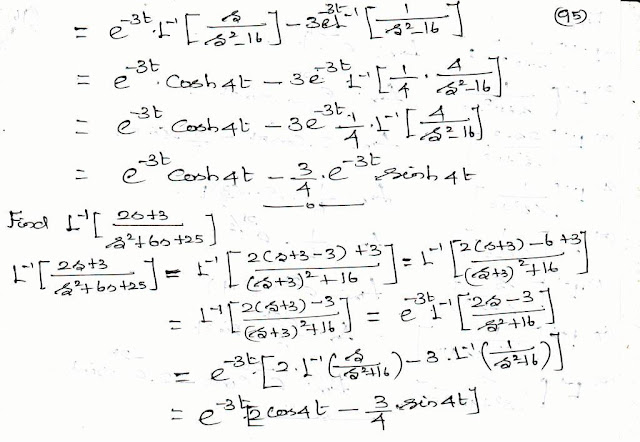 (95)
= e^{-3t} · L^{-1}[s/(s²-16)] - 3e^{-3t} L^{-1}[1/(s²-16)]
= e^{-3t} · cosh 4t - 3e^{-3t} L^{-1}[1/4 · 4/(s²-16)]
= e^{-3t} · cosh 4t - 3e^{-3t} · 1/4 · L^{-1}[4/(s²-16)]
= e^{-3t} cosh 4t - 3/4 · e^{-3t} sinh 4t
Find L^{-1}[(2s+3)/(s²+6s+25)]
L^{-1}[(2s+3)/(s²+6s+25)] = L^{-1}[(2(s+3-3)+3)/((s+3)²+16)] = L^{-1}[(2(s+3)-6+3)/((s+3)²+16)]
= L^{-1}[(2(s+3)-3)/((s+3)²+16)] = e^{-3t} L^{-1}[(2s-3)/(s²+16)]
= e^{-3t}[2 · L^{-1}(s/(s²+16)) - 3 · L^{-1}(1/(s²+16))]
= e^{-3t}[2 cos 4t - 3/4 · sin 4t]